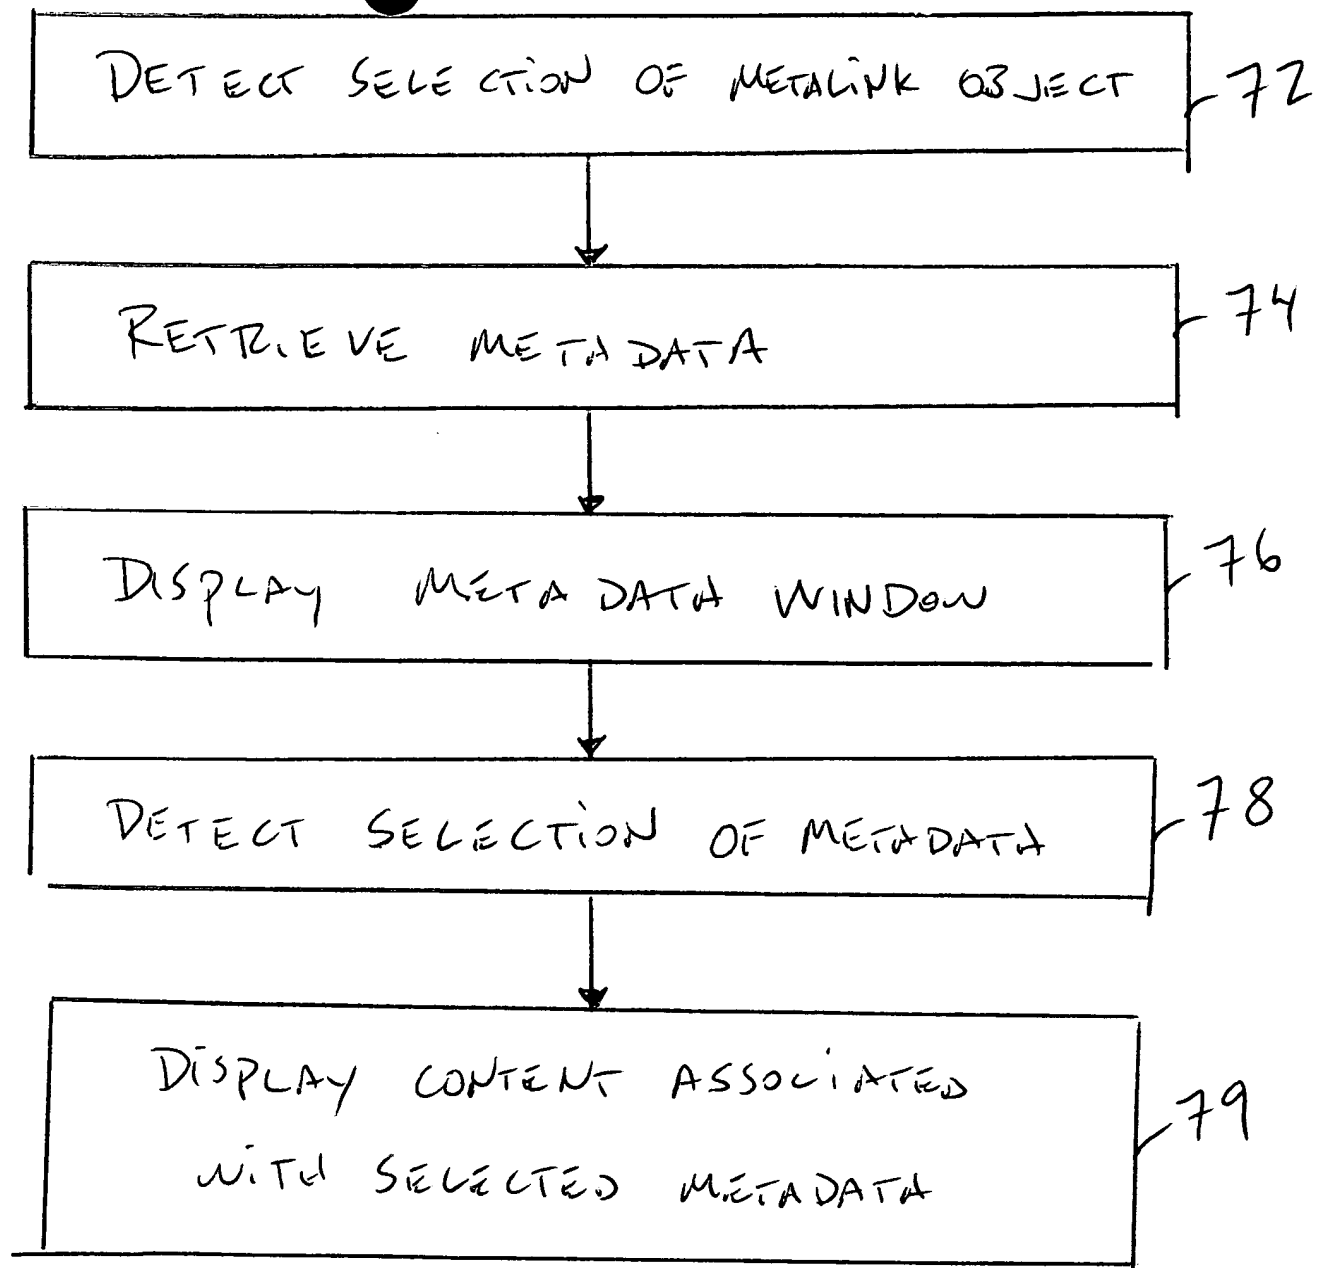 DETECT SELECTION OF METALINK OBJECT
72
RETRIEVE METADATA
74
DISPLAY METADATA WINDOW
76
DETECT SELECTION OF METADATA
78
DISPLAY CONTENT ASSOCIATED
WITH SELECTED METADATA
79